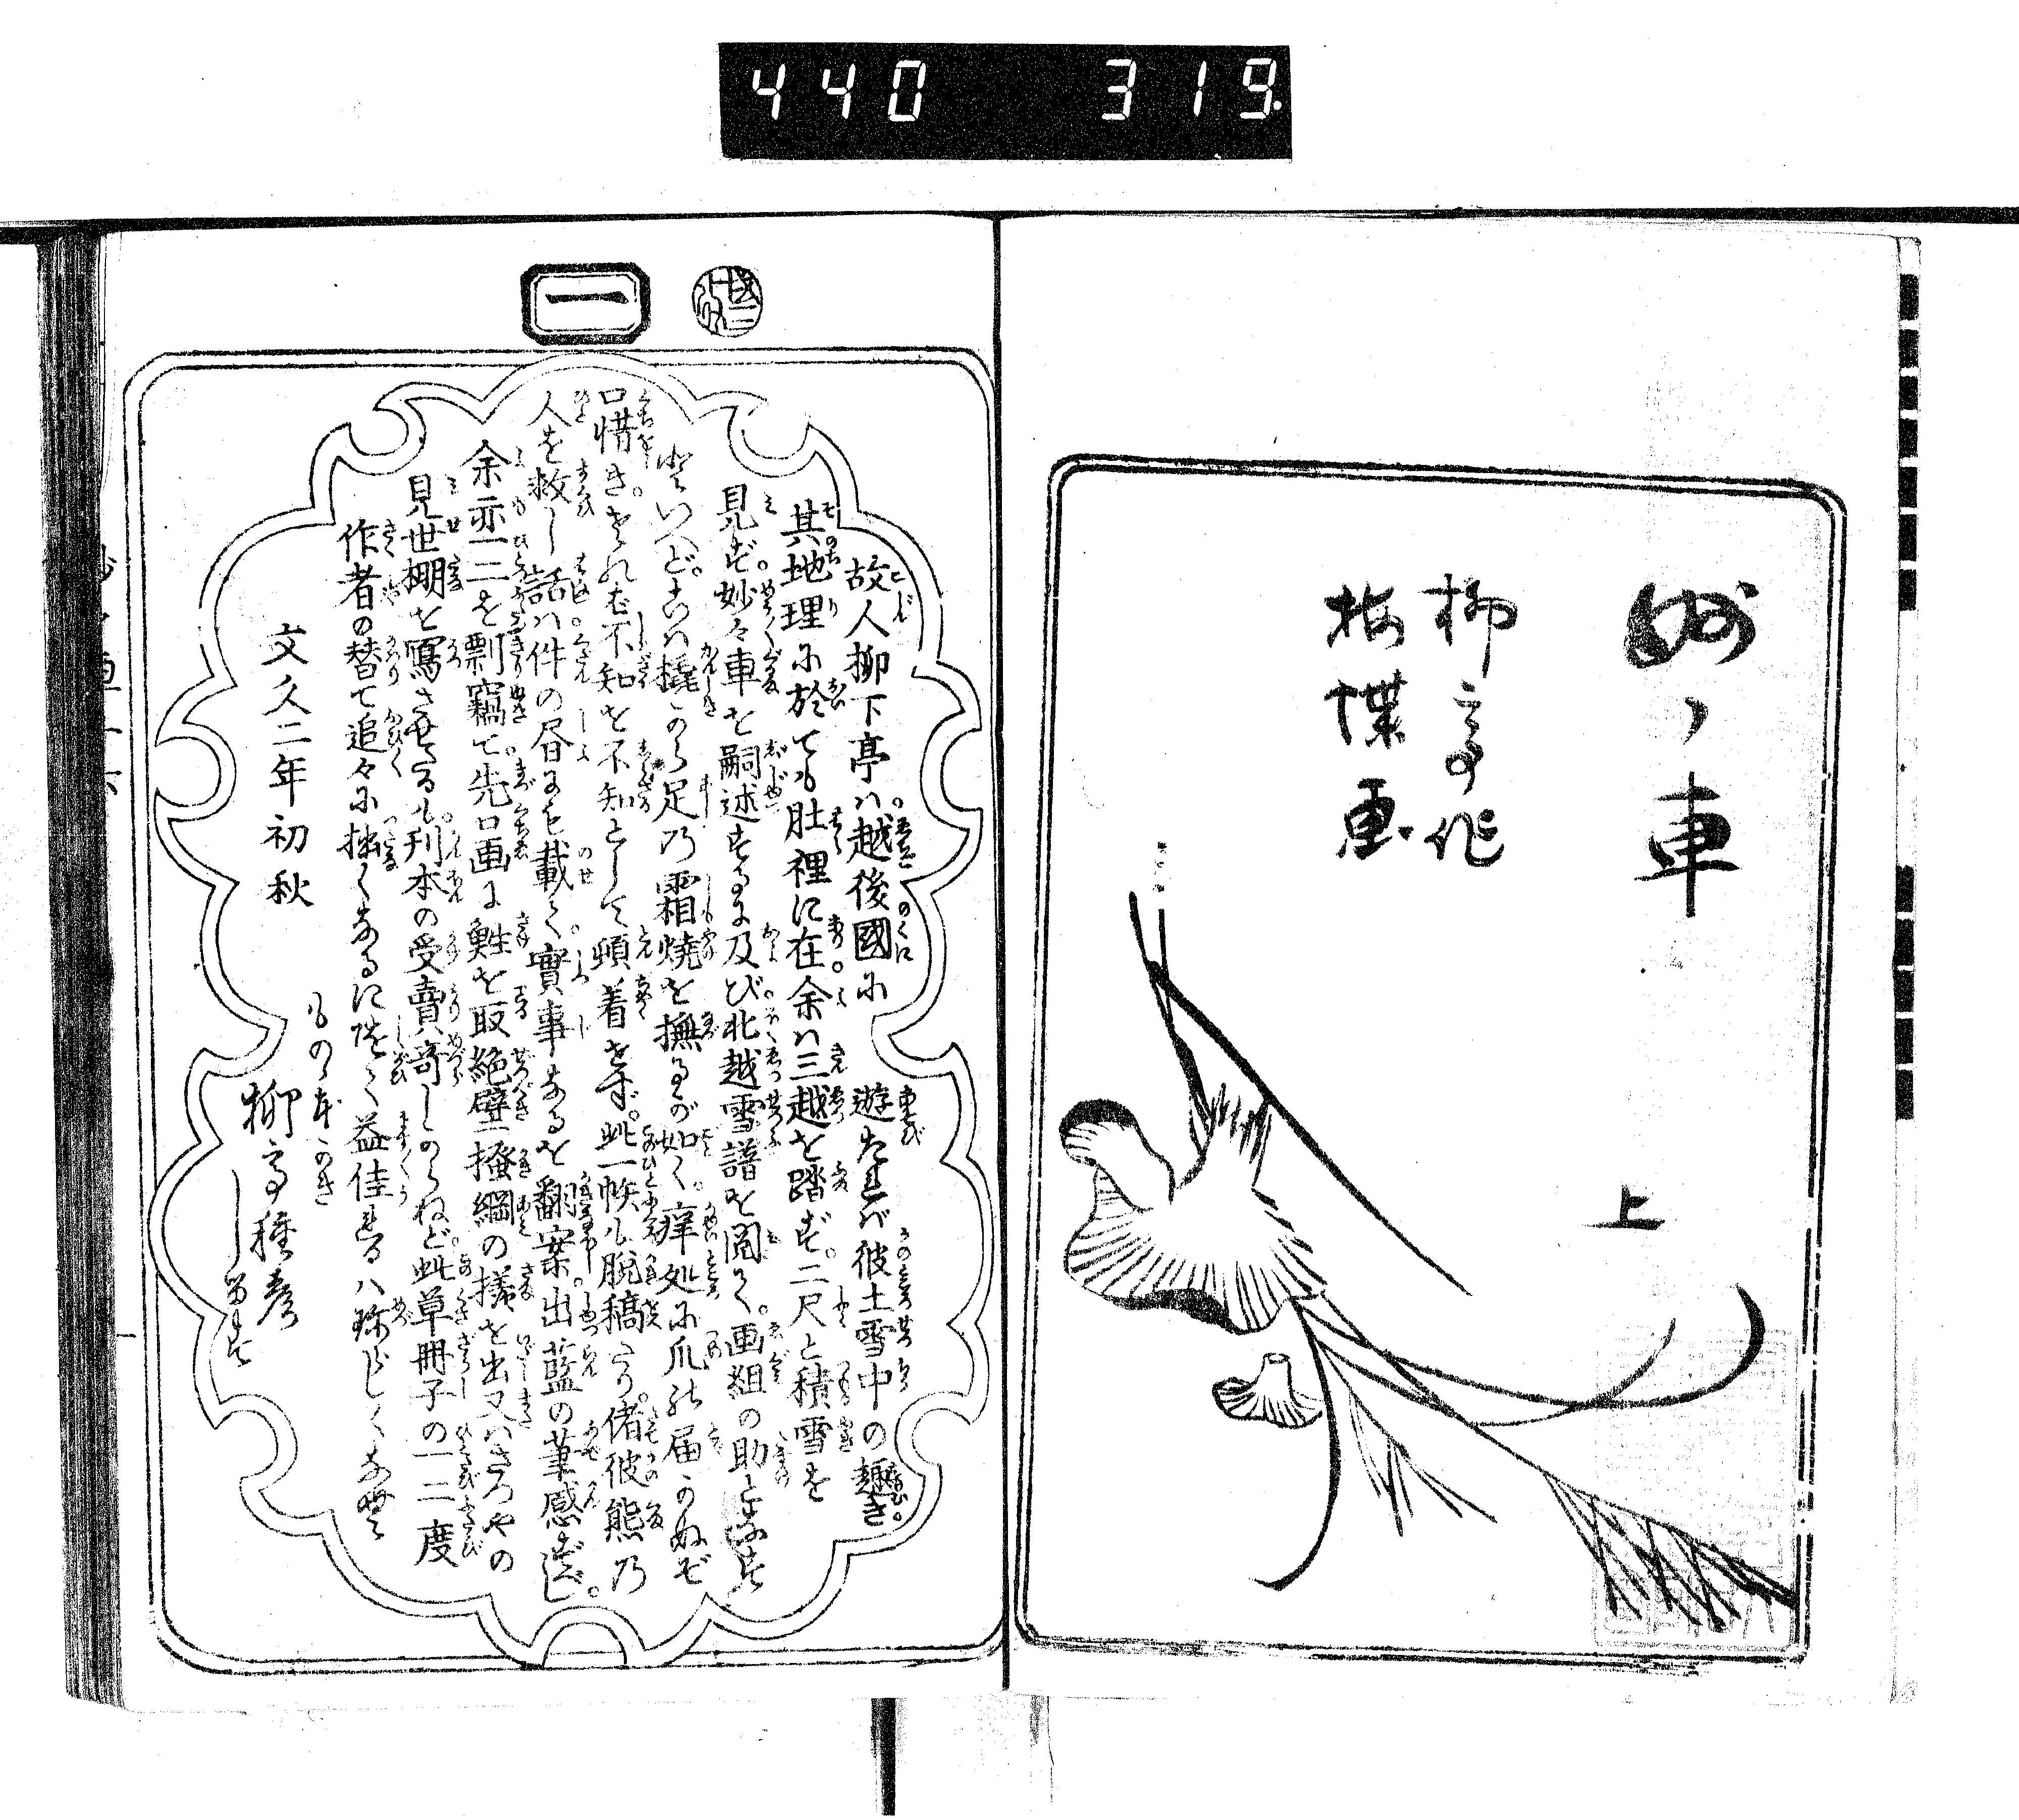 440 319
妙々車
上
柳亭作
梅蝶画
一
故人柳下亭ハ越後國に遊たれバ彼土雪中の趣き
其地理に於ても肚裡に在余ハ三越を踏ず二尺と積雪を
見ず妙々車を嗣述するに及び北越雪譜を閲て画組の助となす
といへどこハ橇から足の霜焼を撫るが如く痒処に爪の届かぬぞ
口惜きされど不知を不知として頓着せず此一帙も脱稿たり偖彼熊の
人を救し話ハ件の冊にも載て實事なるを翻案出藍の筆感ずべし
余亦一二を剽竊て先口画に鮏を取絶壁掻網の様を出又ハさうやの
見世棚を寫させたるも刊本の受賣奇しからねど此草冊子の一二度
作者の替て追々に拙くなるに隨て益佳
文久二年初秋
柳亭種彦
しるす